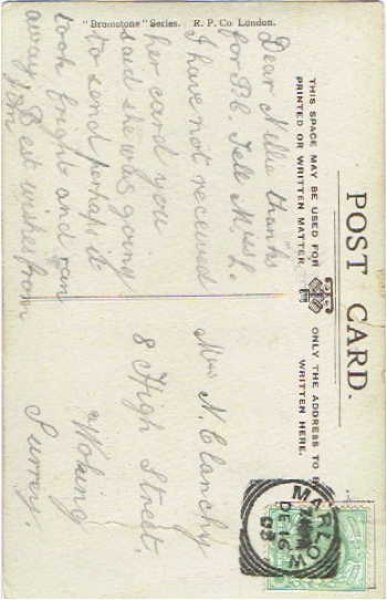 "Bromstone" Series. R. P. Co London.
POST CARD.
THIS SPACE MAY BE USED FOR
PRINTED OR WRITTEN MATTER.
ONLY THE ADDRESS TO BE
WRITTEN HERE.
Dear Nellie thanks
for P.C. Tell Miss L.
I have not received
her card you
said she was going
to send perhaps it
took fright and ran
away Best wishes from
Tom
Miss N Clanchy
8 High Street.
Woking
Surrey.
MARLOW
DE 16